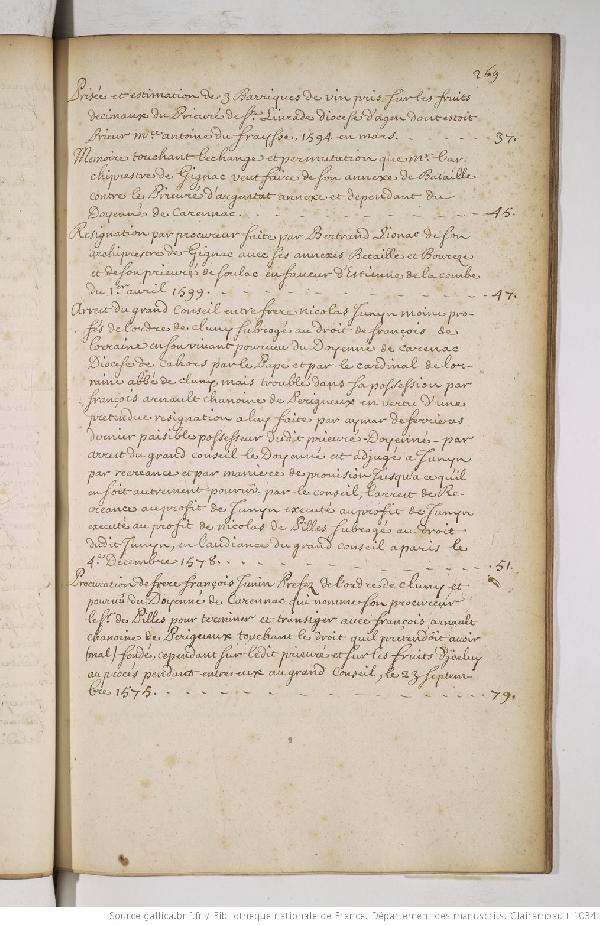 269
Prisée et estimation de 3 Barriques de vin pris sur les fruits
decimaux du Prieuré de Ste. Livrade diocese d'agen dont estoit
Prieur mre. antoine du fraysse, 1594 en mars. 37.
Memoire touchant l'echange et permutation que Mr. l'ar
chiprestre de Gignac veut faire de son annexe de Bataille
contre le Prieuré d'argentat annexe et dependant du
Doyenné de Carennac. 45.
Resignation par procureur faite par Bertrand Lionac de son
archiprestre de Gignac avec ses annexes Betaille et
et de son prieuré de Soulac en faveur d'Estienne de la combe
du 1er. avril 1599. 47.
Arrest du grand Conseil entre frere nicolas Junyn moine pro-
fés de l'ordre de cluny subrogé au droit de françois de
Lorraine en son vivant pourveu du Doyenné de Carennac
Diocese de Cahors par le Pape et par le cardinal de lor-
raine abbé de cluny, mais troublé dans sa possession par
françois arnault chanoine de Perigueux en vertu d'une
pretendue resignation a luy faite par aymar de ferrieres
dernier paisible possesseur dudit prieuré-Doyenné - par
arrest du grand conseil le Doyenné est adjugé a Junyn
par recreance et par maniere de provision Jusqu'a ce qu'il
en soit autrement pourvû par le conseil, l'arrest de Re-
creance au profit de Junyn executé au profit de Junyn
executé au profit de nicolas de Pilles subrogé au droit
dudit Junyn, en l'audiance du grand conseil a paris le
4e. Decembre 1578. 51.
Procuration de frere françois Junin Profez de l'ordre de Cluny et
pourvû du Doyenné de Carennac qui nomme son procureur
le Sr. de Pilles pour terminer et transiger avec françois arnault
chanoine de Perigueux touchant le droit qu'il pretendoit avoir
(mal) fondé, cependant sur ledit prieuré et sur les fruits d'iceluy
au procés pendant entre eux au grand Conseil, le 23 septem-
bre 1575. 79.
Source gallica.bnf.fr / Bibliothèque nationale de France. Département des manuscrits. Clairambault 1034